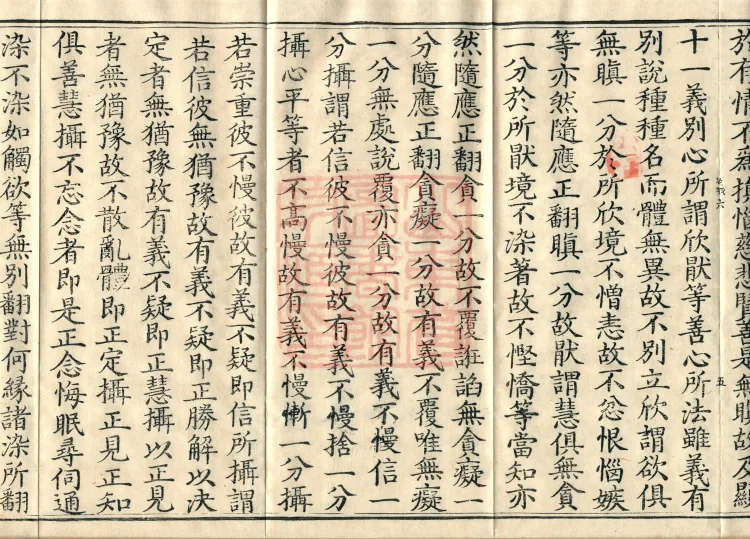 於有情不爲損惱慈悲賢善是無瞋故及顯
十一義別心所謂欣猒等善心所法雖義有
別說種種名而體無異故不別立欣謂欲俱
無瞋一分於所欣境不憎恚故不忿恨惱嫉
等亦然隨應正翻瞋一分故猒謂慧俱無貪
一分於所猒境不染著故不慳憍等當知亦
然隨應正翻貪一分故不覆誑諂無貪癡一
分隨應正翻貪癡一分故有義不覆唯無癡
一分無處說覆亦貪一分故有義不慢信一
分攝謂若信彼不慢彼故有義不慢捨一分
攝心平等者不高慢故有義不慢慚一分攝
若崇重彼不慢彼故有義不疑即信所攝謂
若信彼無猶豫故有義不疑即正勝解以決
定者無猶豫故有義不疑即正慧攝以正見
者無猶豫故不散亂體即正定攝正見正知
俱善慧攝不忘念者即是正念悔眠尋伺通
染不染如觸欲等無別翻對何緣諸染所翻